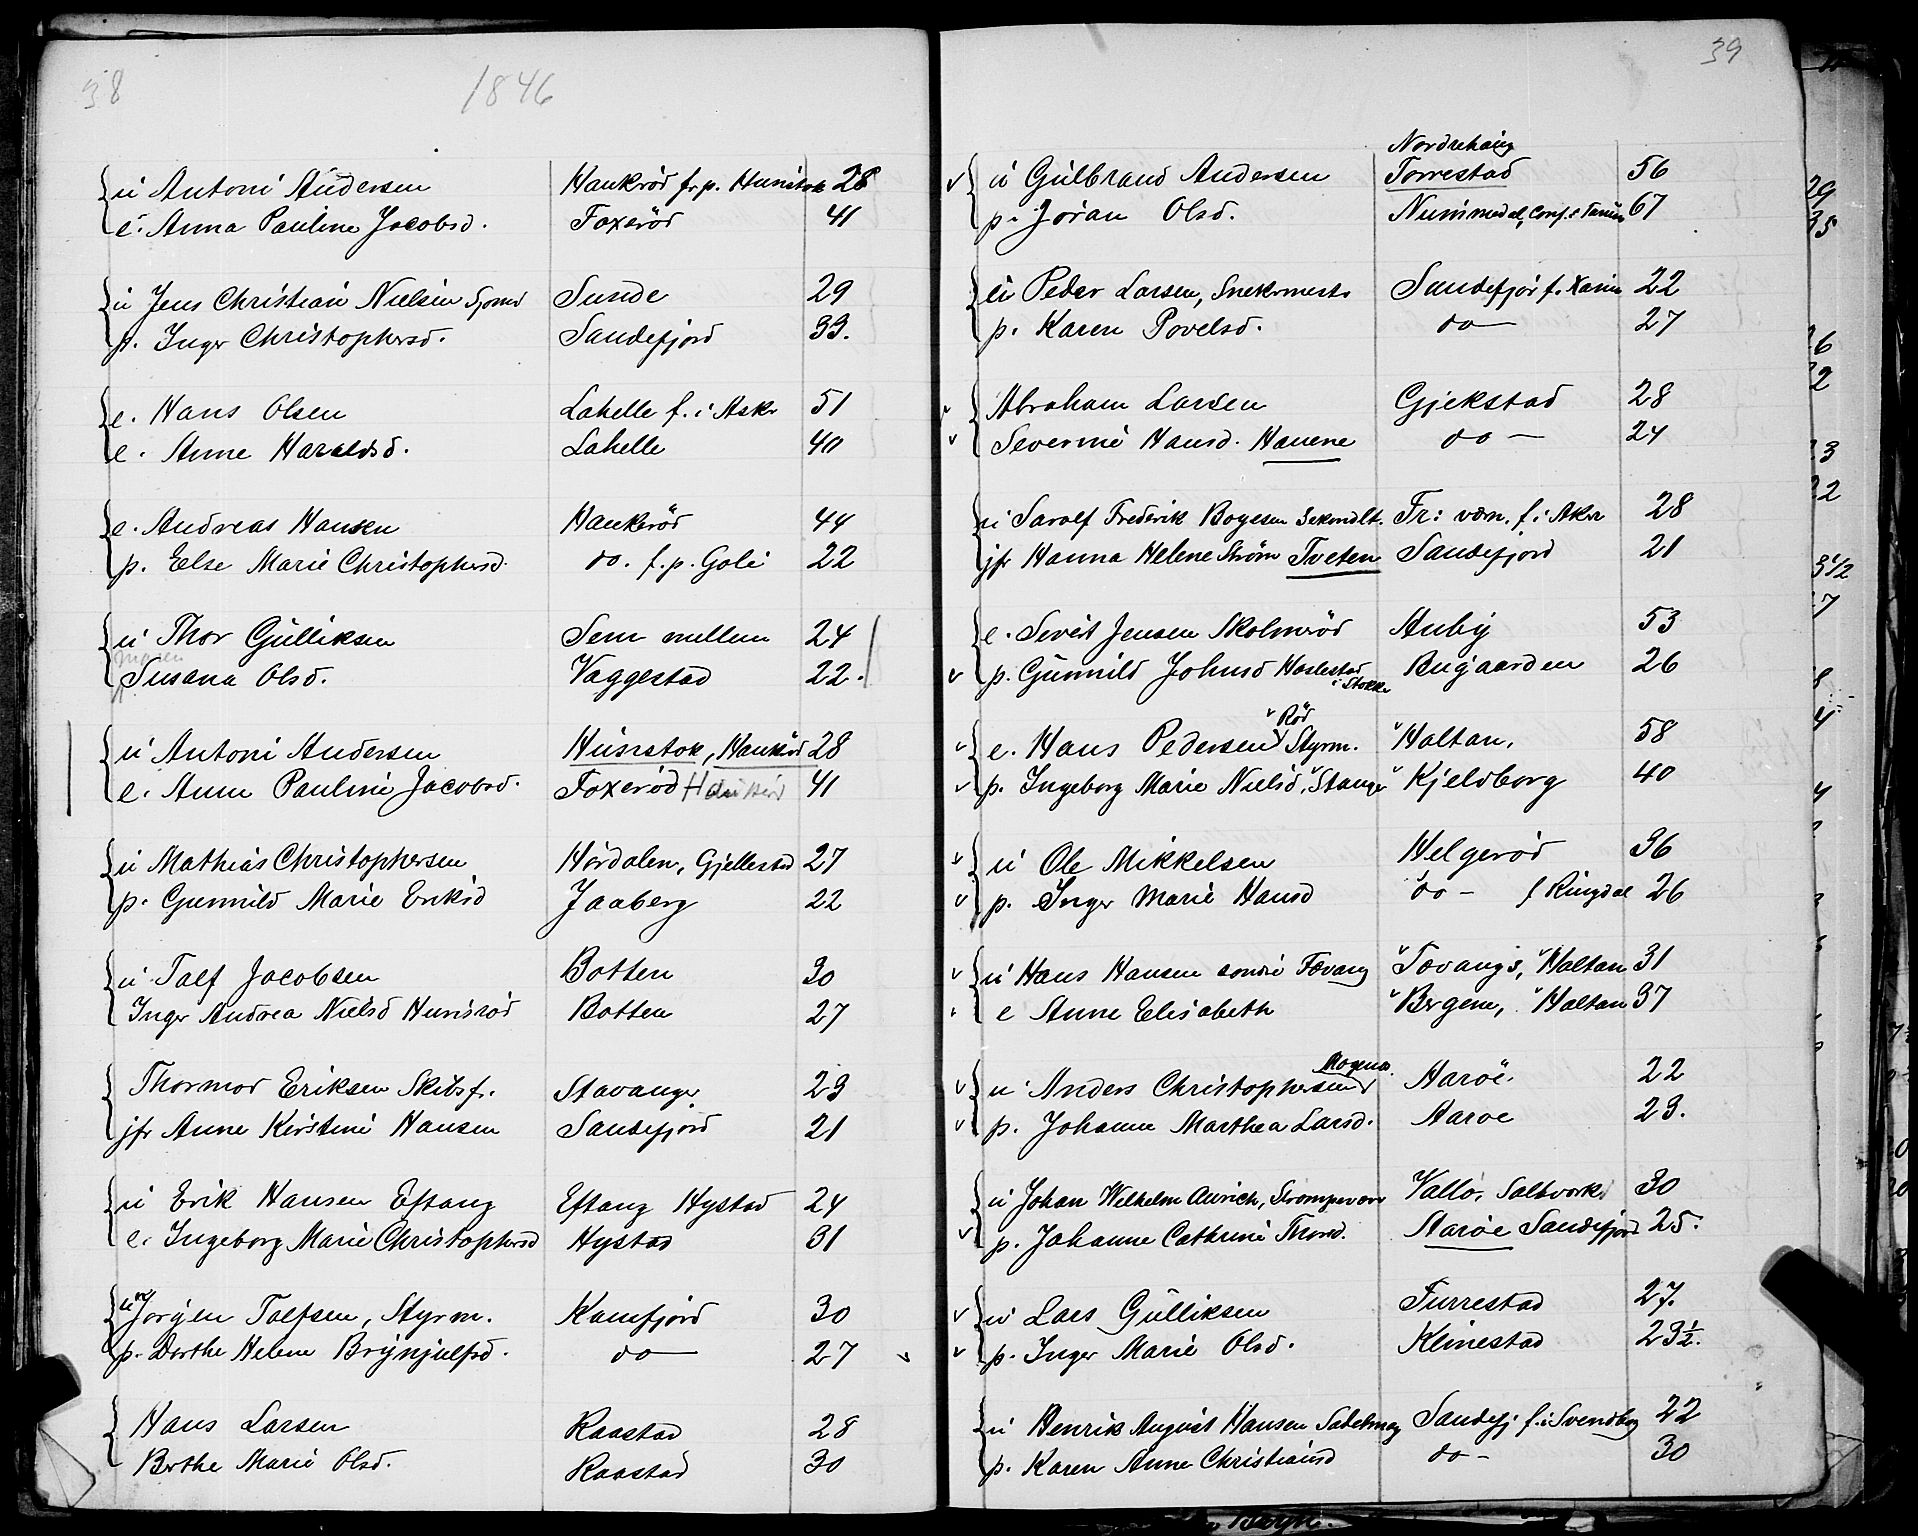 38
1846
u Antoni Andersen Haukröd fr. p. Hunstok 28
e. Anna Pauline Jacobsd. Foxeröd 41
u Jens Christian Nielsen Sjomd Sunde 29
p. Inger Christophersd. Sandefjord 33.
e. Hans Olsen Lahelle f. i Askr 51
e. Anne Haraldsd. Lahelle 40
e. Andreas Hansen Haukeröd 44
p. Else Marie Christophersd. do. f. p. Goli 22
u Thor Gulliksen Sem mellem 24
Maren
Susana Olsd. Vaggestad 22.
u Antoni Andersen Husestok, Haukröd 28
e. Anne Pauline Jacobsd. Foxeröd Haukeröd 41
u Mathias Christophersen Hördalen, Gjellestad 27
p. Gunnild Marie Eriksd Jaaberg 22
u Talf Jacobsen Botten 30
Inger Andrea Nielsd Hunsröd Botten 27
Thormod Eriksen Skibsf. Stavanger 23
jfr Anne Kirstine Hansen Sandefjord 21
u Erik Hansen Eftang Eftang Hystad 24
e. Ingeborg Marie Christophersd Hystad 31
u Jorgen Talfsen, Styrm. Kamfjord 30
p. Dorthe Helene Brynjulfsd. do 27
Hans Larsen Raastad 28
Berthe Marie Olsd. Raastad 30
39
Nordrehaug
u Gulbrand Andersen Torrestad 56
p. Joran Olsd. Nummedal, Conf. i Tanum 67
u Peder Larsen, Snekermests Sandefjor f. 22
p. Karen Povelsd. do 27
Abraham Larsen Gjekstad 28
Severine Hansd. Hauene do 24
u Sarolf Frederik Boyesen Sekondlt. Fr: værn. f. i Aker 28
jfr Hanna Helene Ström Tveten Sandefjord 21
e. Sivert Jensen Skolmröd Auby 53
p. Gunnild Johnsd Haslestad i Stokke Bugaarden 26
Röd
e. Hans Pedersen Styrm. Haltan. 58
p. Ingeborg Marie Nielsd, Stange Kjeldborg 40
u Ole Mikkelsen Helgeröd 36
p. Inger Marie Hansd do - f Ringdal 26
u Hans Hansen sondre Fævang Tovangs, Haltan 31
e Anne Elisabeth Bergene, Haltan 37
Mogens.
u Anders Christophersen Aaröe. 22
p. Johanne Marthea Larsd. Aaroe 23.
u Johan Wilhelm Aurich, Strompevæv Vallo, Saltværk 30
p. Johanne Cathrine Thorsd. Aaröe Sandefjord 25.
u Lars Gulliksen Furrestad 27.
p. Inger Marie Olsd. Klinestad 23½.
u Henrik August Hansen Sadelmag Sandefj f. i Svendborg 22
p. Karen Anne Christiansd do - 30